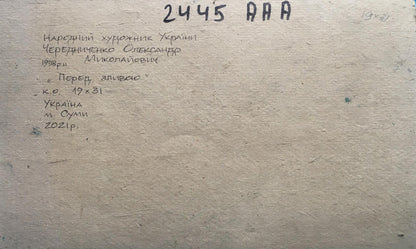 2445 ААА
19×31
Народний художник України
Чередниченко Олександр
Миколайович
„Перед зливою"
к.о. 19×31
Україна
м. Суми
2021р.